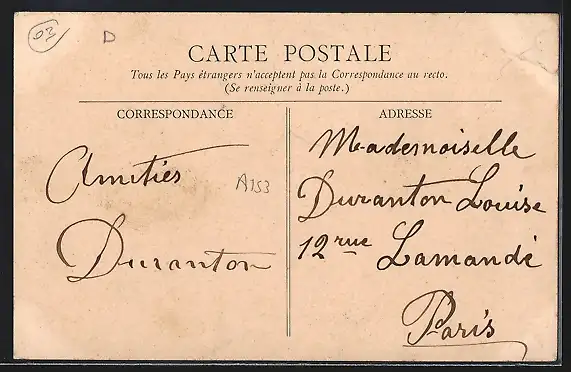 03
D
CARTE POSTALE
Tous les Pays étrangers n'acceptent pas la Correspondance au recto.
(Se renseigner à la poste.)
CORRESPONDANCE
Amitiés
A153
Duranton
ADRESSE
Mademoiselle
Duranton Louise
12 rue Lamandé
Paris